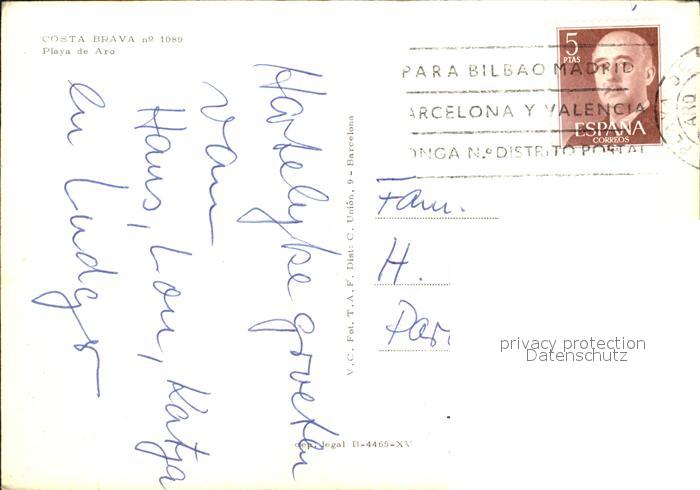 COSTA BRAVA nº 1089
Playa de Aro
Hartelyke groeten
van
Hans, Lou, Katja
en Ludgr
V. C. Fot. T. A. F. Dist: C. Unión, 9 - Barcelona
dep. legal B-4465-XV
5
PTAS
ESPAÑA
CORREOS
PARA BILBAO MADRID
ARCELONA Y VALENCIA
ONGA N.º DISTRITO POSTAL
Fam.
H.
Par
privacy protection
Datenschutz